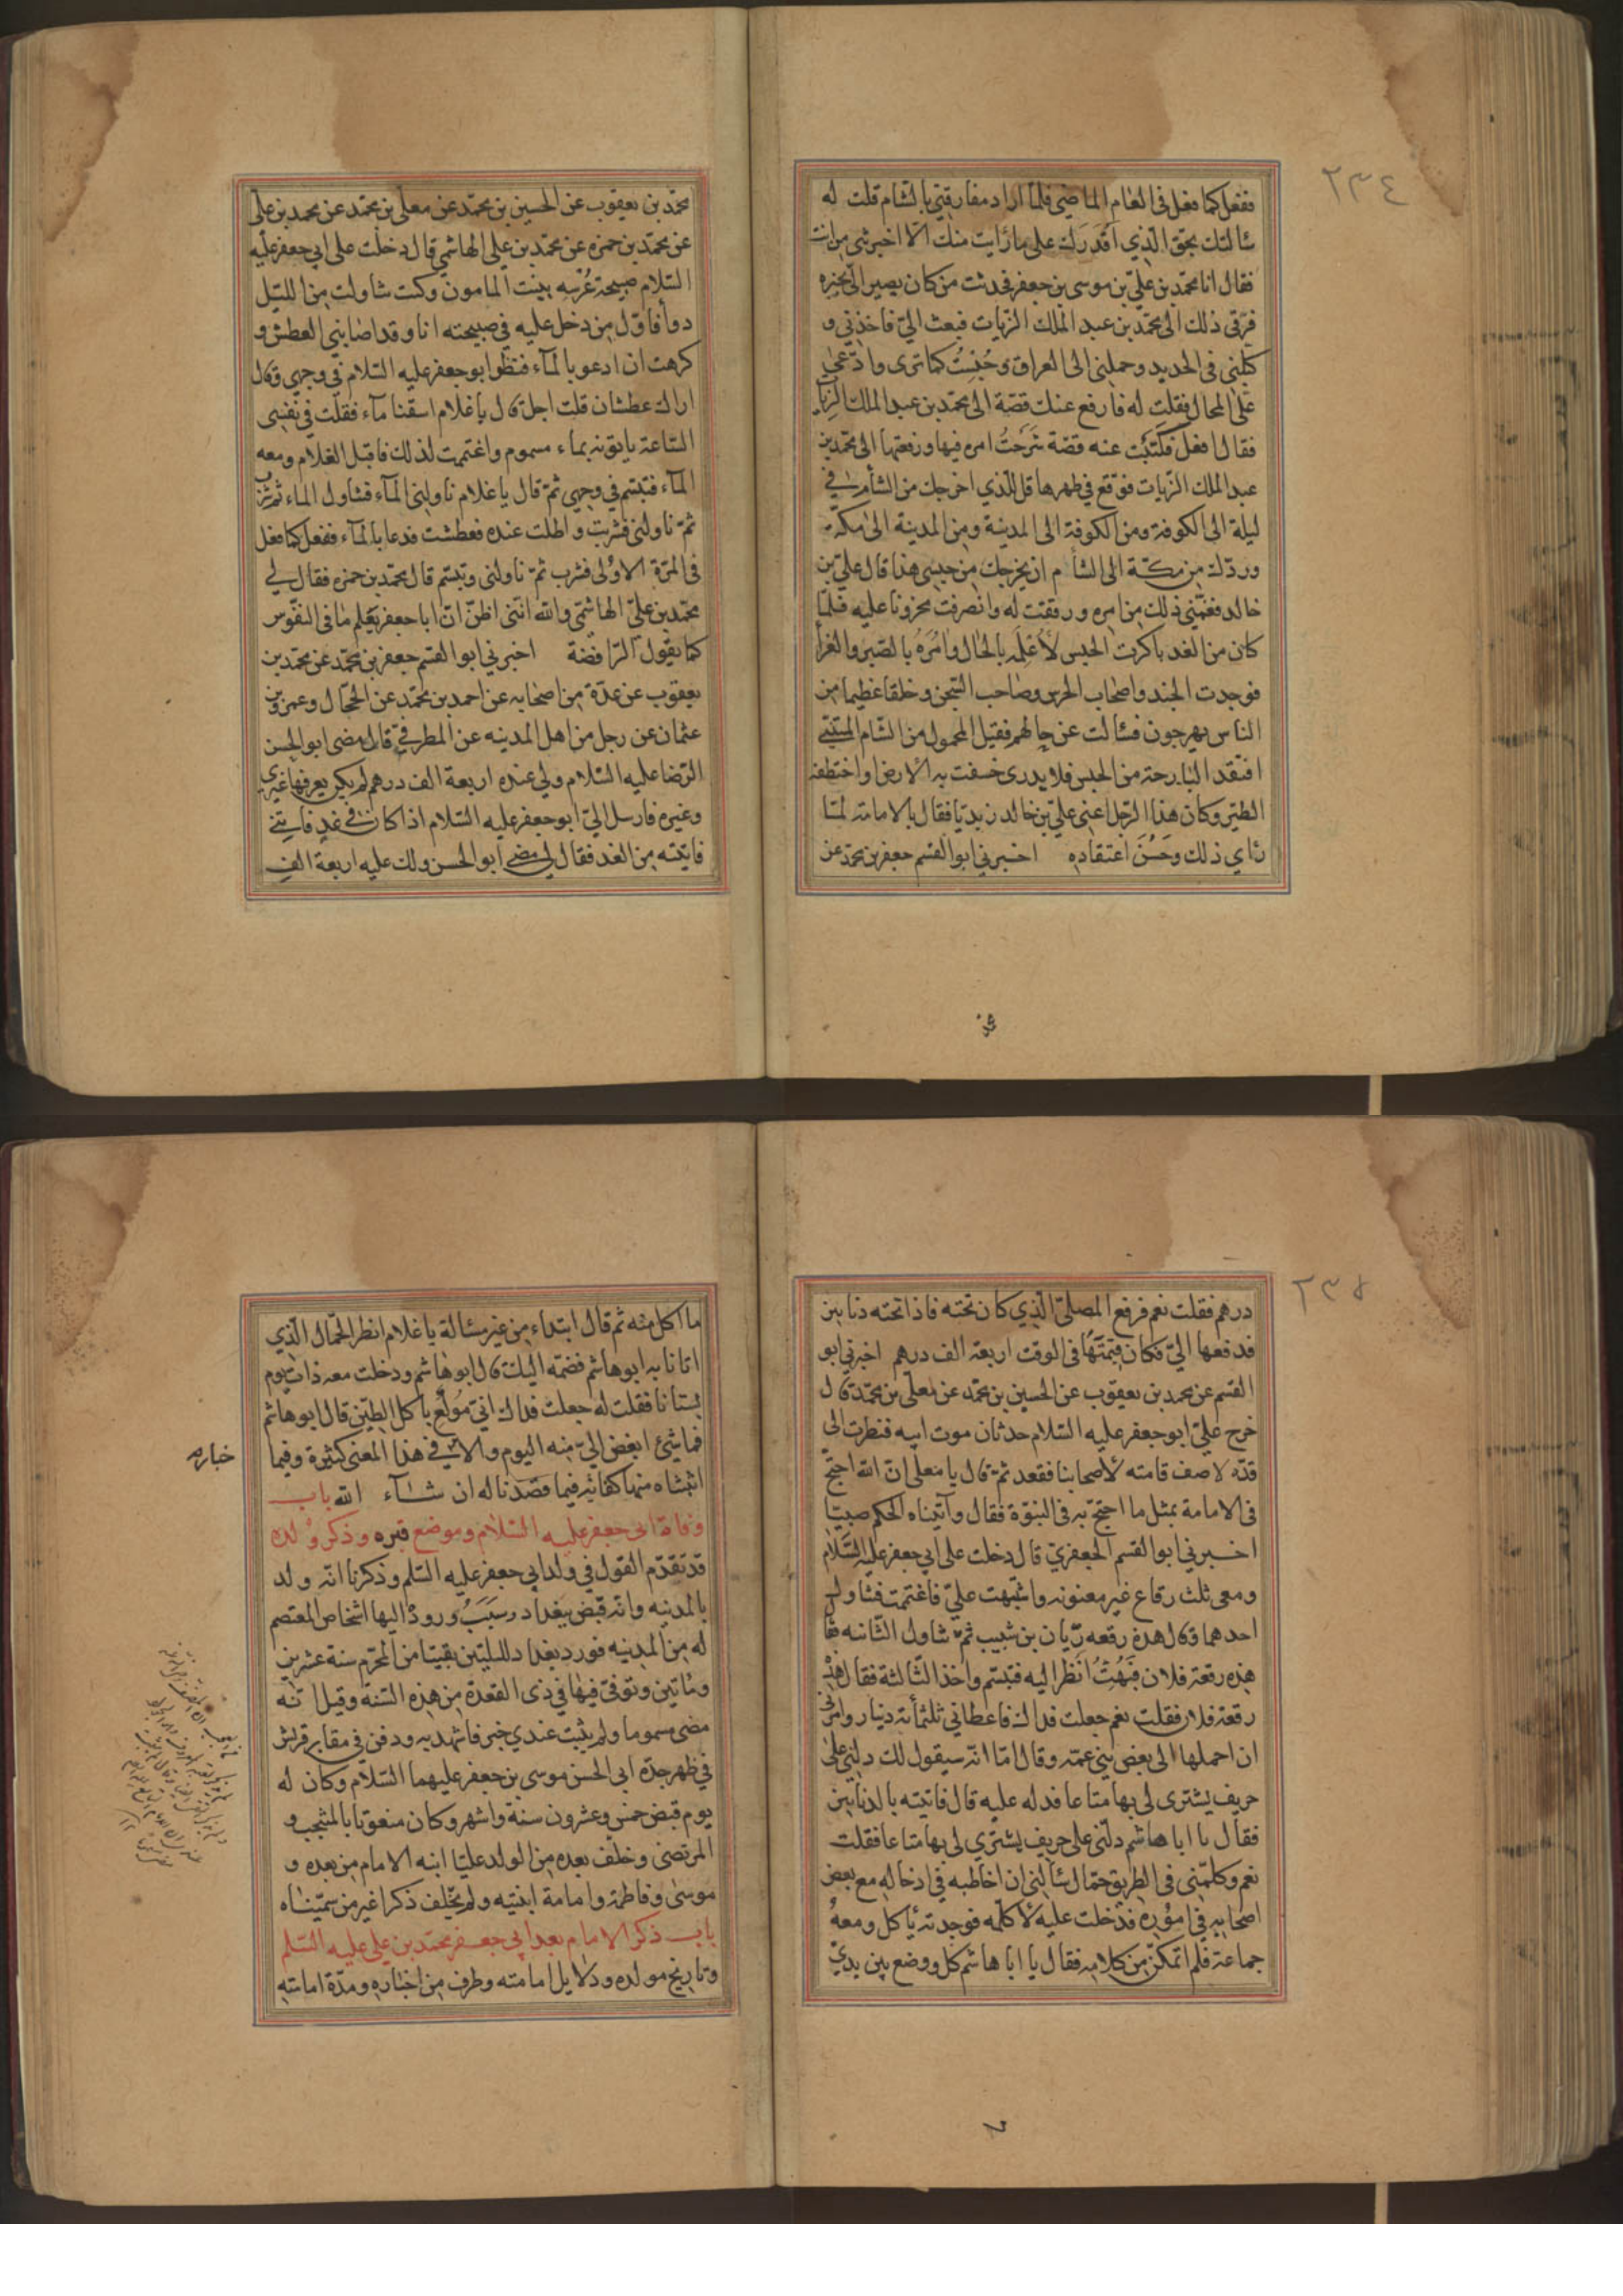 ٢٣٤
ففعل كما فعل فى العام الماضي فلما اراد مفارقتي بالشام قلت له
سٔالتك بحق الذي اقدرك على ما رٔايت منك الا اخبرتني من انت
فقال انا محمد بن علي بن موسى بن جعفر فحدثت من كان يصير الي بخبره
فرقى ذلك الى محمد بن عبد الملك الزيات فبعث الي فاخذني و
كبلني فى الحديد وحملني الى العراق وحُبِسْتُ كما ترى وادعي
على المحال فقلت له فارفع عنك قصة الى محمد بن عبد الملك الزيات
فقال افعل فكتبت عنه قصة شرحتُ امره فيها ورفعتها الى محمد بن
عبد الملك الزيات فوقع في ظهرها قل للذي اخرجك من الشأم في
ليلة الى الكوفة ومن الكوفة الى المدينة ومن المدينة الى مكة
وردك من مكة الى الشأم ان يخرجك من حبسي هذا قال علي بن
خالد فغمني ذلك من امره ورققت له وانصرفت محزونا عليه فلما
كان من الغد باكرت الحبس لأعلمه بالحال وامُرَهُ بالصبر والعزأ
فوجدت الجند واصحاب الحرس وصاحب السجن وخلقا عظيما من
الناس يهرجون فسٔالت عن حالهم فقيل المحمول من الشام المتنبي
افتقد البارحة من الحبس فلا يدرى خسفت به الارض او اختطفه
الطير وكان هذا الرجل اعنى علي بن خالد زيديا فقال بالامامة لما
رٔاي ذلك وحَسُنَ اعتقاده اخبرني ابو القسم جعفر بن محمد عن
محمد بن يعقوب عن الحسين بن محمد عن معلى بن محمد عن محمد بن على
عن محمد بن حمزه عن محمد بن علي الهاشمي قال دخلت على ابي جعفر عليه
السلام صبيحة عُرسِه ببنت المامون وكنت تناولت من الليل
دوأ فاول من دخل عليه في صبيحته انا وقد اصابني العطش و
كرهت ان ادعو بالمآء فنظر ابو جعفر عليه السلام في وجهي وقال
اراك عطشان قلت اجل قال يا غلام اسقنا مآء فقلت في نفسي
الساعة ياتونه بماء مسموم واغتممت لذلك فاقبل الغلام ومعه
المآء فتبسم في وجهي ثم قال يا غلام ناولني المآء فتناول الماء ثم شرب
ثم ناولني فشربت واطلت عنده فعطشت فدعا بالمآء ففعل كما فعل
فى المرة الاولى فشرب ثم ناولني وتبسم قال محمد بن حمزه فقال لي
محمد بن علي الهاشمي والله انني اظن ان ابا جعفر يعلم ما فى النفوس
كما يقول الرافضة اخبرني ابو القسم جعفر بن محمد عن محمد بن
يعقوب عن عدة من اصحابه عن احمد بن محمد عن الحجال وعمرو بن
عثمان عن رجل من اهل المدينه عن المطرفي قال مضى ابو الحسن
الرضا عليه السلام ولي عنده اربعة الف درهم لم يكن يعرفها غيري
وغيره فارسل الي ابو جعفر عليه السلام اذا كان في غد فاتني
فاتيته من الغد فقال لي مضى ابو الحسن ولك عليه اربعة الف
٢٣٥
درهم فقلت نعم فرفع المصلي الذي كان تحته فاذا تحته دنانين
فدفعها الي فكان قيمتها فى الوقت اربعة الف درهم اخبرني ابو
القسم عن محمد بن يعقوب عن الحسين بن محمد عن معلى بن محمد قال
خرج علي ابو جعفر عليه السلام حدثان موت ابيه فنظرت الى
قده لاصف قامته لأصحابنا فقعد ثم قال يا معلى ان الله احتج
فى الامامة بمثل ما احتج به فى النبوة فقال وآتيناه الحكم صبيا
اخبرني ابو القسم الجعفري قال دخلت على ابي جعفر عليه السلام
ومعى ثلث رقاع غير معنونه واشتبهت علي فاغتممت فتناول
احدهما وقال هذه رقعه ريان بن شبيب ثم تناول الثانيه فقال
هذه رقعة فلان فَبُهتُّ انظر اليه فتبسم واخذ الثالثة فقال هذه
رقعة فلان فقلت نعم جعلت فداك فاعطاني ثلثمأة دينار وامرني
ان احملها الى بعض بني عمه وقال اما انه سيقول لك دلني على
حريف يشترى لى بها متاعا فدله عليه قال فاتيته بالدنانين
فقال يا ابا هاشم دلني على حريف يشتري لي بها متاعا فقلت
نعم وكلمني فى الطريق حمال سٔالني ان اخاطبه في ادخاله مع بعض
اصحابه في امُوره فدخلت عليه لأكلمه فوجدته ئاكل ومعه
جماعة فلم اتمكن من كلامه فقال يا ابا هاشم كل ووضع بين يدي
ما اكل منه ثم قال ابتداء من غير مسٔالة يا غلام انظر الحمال الذي
اتانا به ابو هاشم فضمه اليك قال ابو هاشم ودخلت معه ذات يوم
بستانا فقلت له جعلت فداك اني مُولع باكل الطين قال ابو هاشم
فما شئ ابغض الي منه اليوم والا في هذا المعنى كثيرة وفيما
خباره
اثبتناه منها كفاية فيما قصدنا له ان شاء الله باب
وفاة ابى جعفر عليه السلام وموضع قبره وذكر ولده
قد تقدم القول في ولد ابي جعفر عليه السلم وذكرنا انه ولد
بالمدنيه وانه قبض ببغداد وسَبَبُ وروده اليها اشخاص المعتصم
له من المدنيه فورد بغداد لليلتين بقيتا من المحرم سنة عشرين
ومأتين وتوفي فيها في ذى القعدة من هذه السنة وقيل انه
مضى مسموما ولم يثبت عندي خبر فاشهد به ودفن في مقابر قريش
في ظهر جده ابى الحسن موسى بن جعفر عليهما السلام وكان له
يوم قبض خمس وعشرون سنة واشهر وكان منعوتا بالمنتجب و
المرتضى وخلف بعده من الولد عليا ابنه الامام من بعده و
موسى وفاطمة وامامة ابنتيه ولم يخلف ذكرا غير من سميناه
باب ذكر الامام بعد ابي جعفر محمد بن علي عليه السلم
وتاريخ مولده ودلايل امامته وطرف من اخباره ومدة امامته